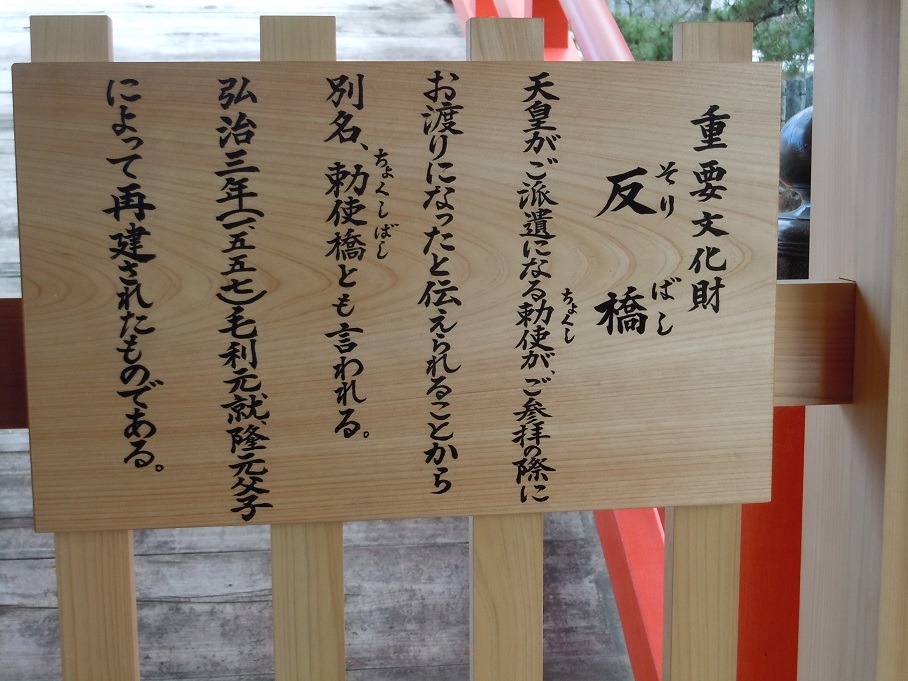 重要文化財
反橋
そりばし
天皇がご派遣になる勅使が、ご参拝の際に
ちょくし
お渡りになったと伝えられることから
別名、勅使橋とも言われる。
ちょくしばし
弘治三年(一五五七)毛利元就、隆元父子
によって再建されたものである。